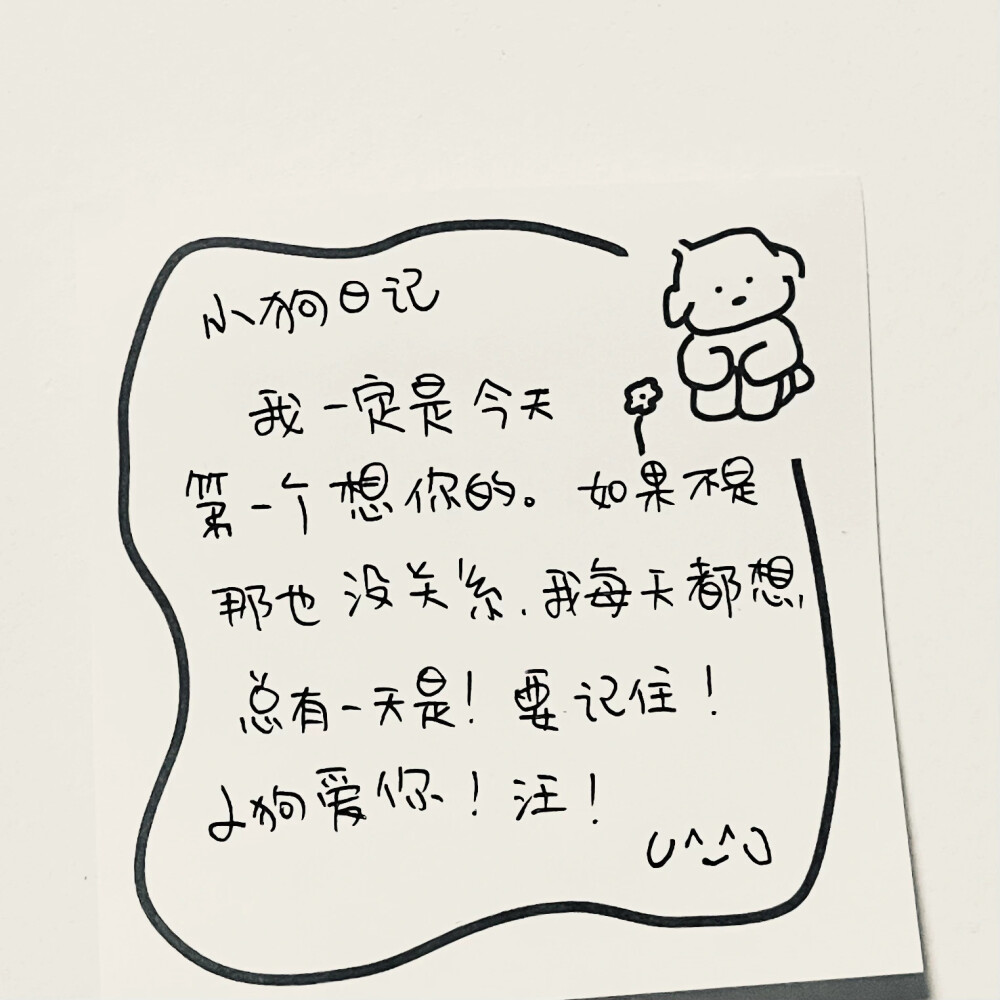 小狗日记
我一定是今天
第一个想你的。如果不是
那也没关系.我每天都想,
总有一天是！要记住！
小狗爱你！汪！